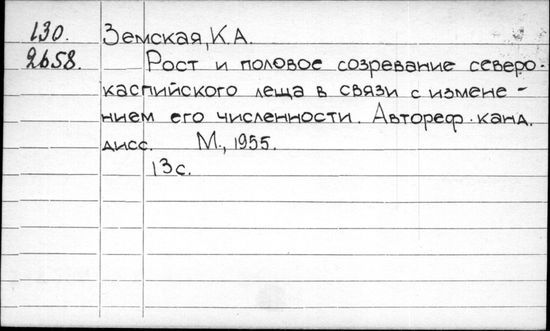 130. Земская, К.А.
2658. Рост и половое созревание северо-
каспийского леща в связи с измене-
нием его численности. Автореф. канд.
дисс. М., 1955.
13с.